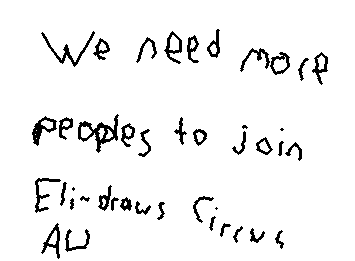 We need more
peoples to join
Eli-draws Circus
AU